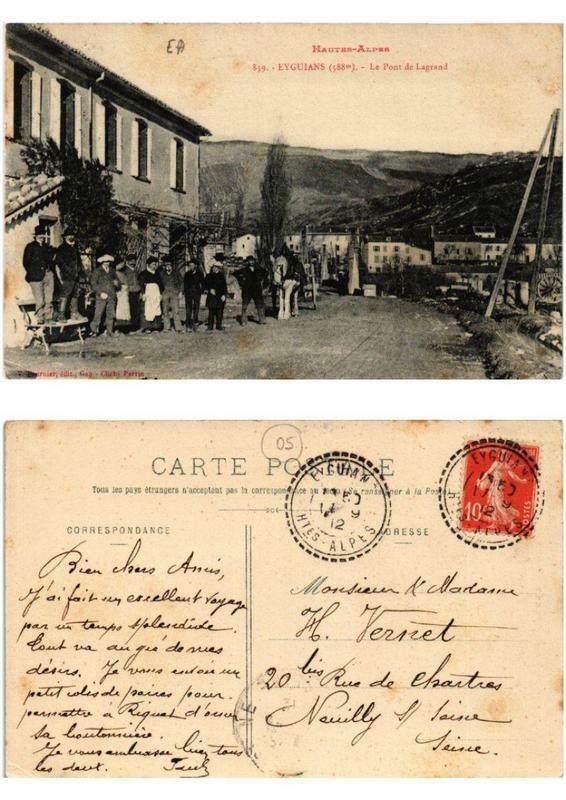 EA
HAUTES-ALPES
859. - EYGUIANS (588m). - Le Pont de Lagrand
V. Fournier, édit., Gap - Cliché Perrin
05
CARTE POSTALE
Tous les pays étrangers n'acceptent pas la correspondance au verso (Se renseigner à la Poste)
CORRESPONDANCE
ADRESSE
EYGUIAN
17 9
12
HTES-ALPES
EYGUIAN
12
10
POSTES
Bien chers Amis,
J'ai fait un excellent voyage
par un temps splendide.
Tout va au gré de mes
désirs. Je vous envoie un
petit colis de poires pour
permettre à Riquet d'orner
sa boutonnière.
Je vous embrasse bien tous
les deux.
Monsieur & Madame
H. Vernet
20 bis Rue de Chartres
Neuilly s/ Seine
Seine.